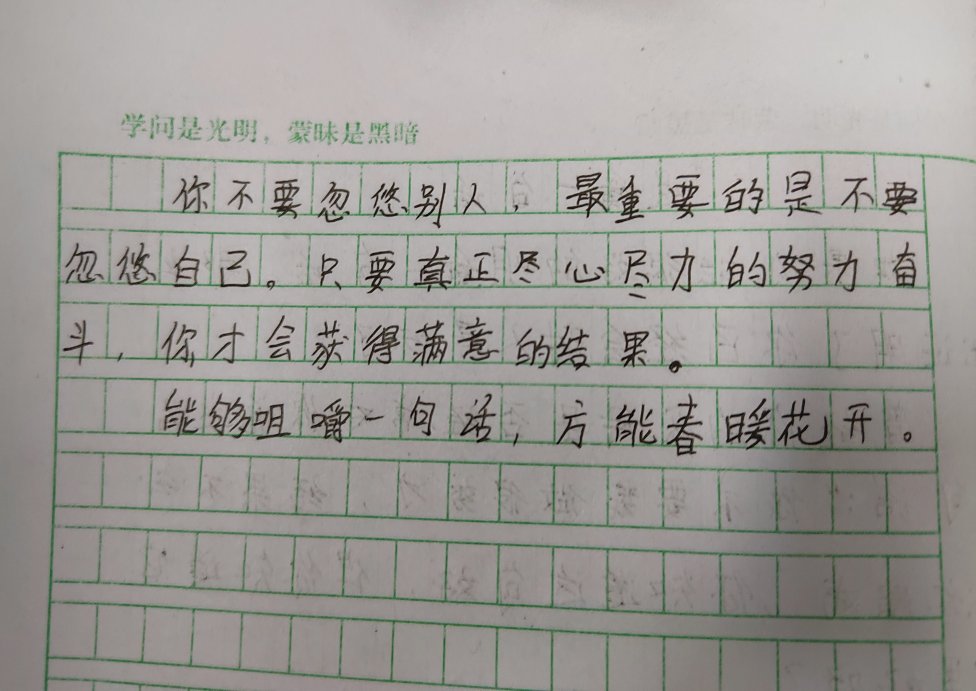 学问是光明，蒙昧是黑暗
你不要忽悠别人，最重要的是不要
忽悠自己。只要真正尽心尽力的努力奋
斗，你才会获得满意的结果。
能够咀嚼一句话，方能春暖花开。